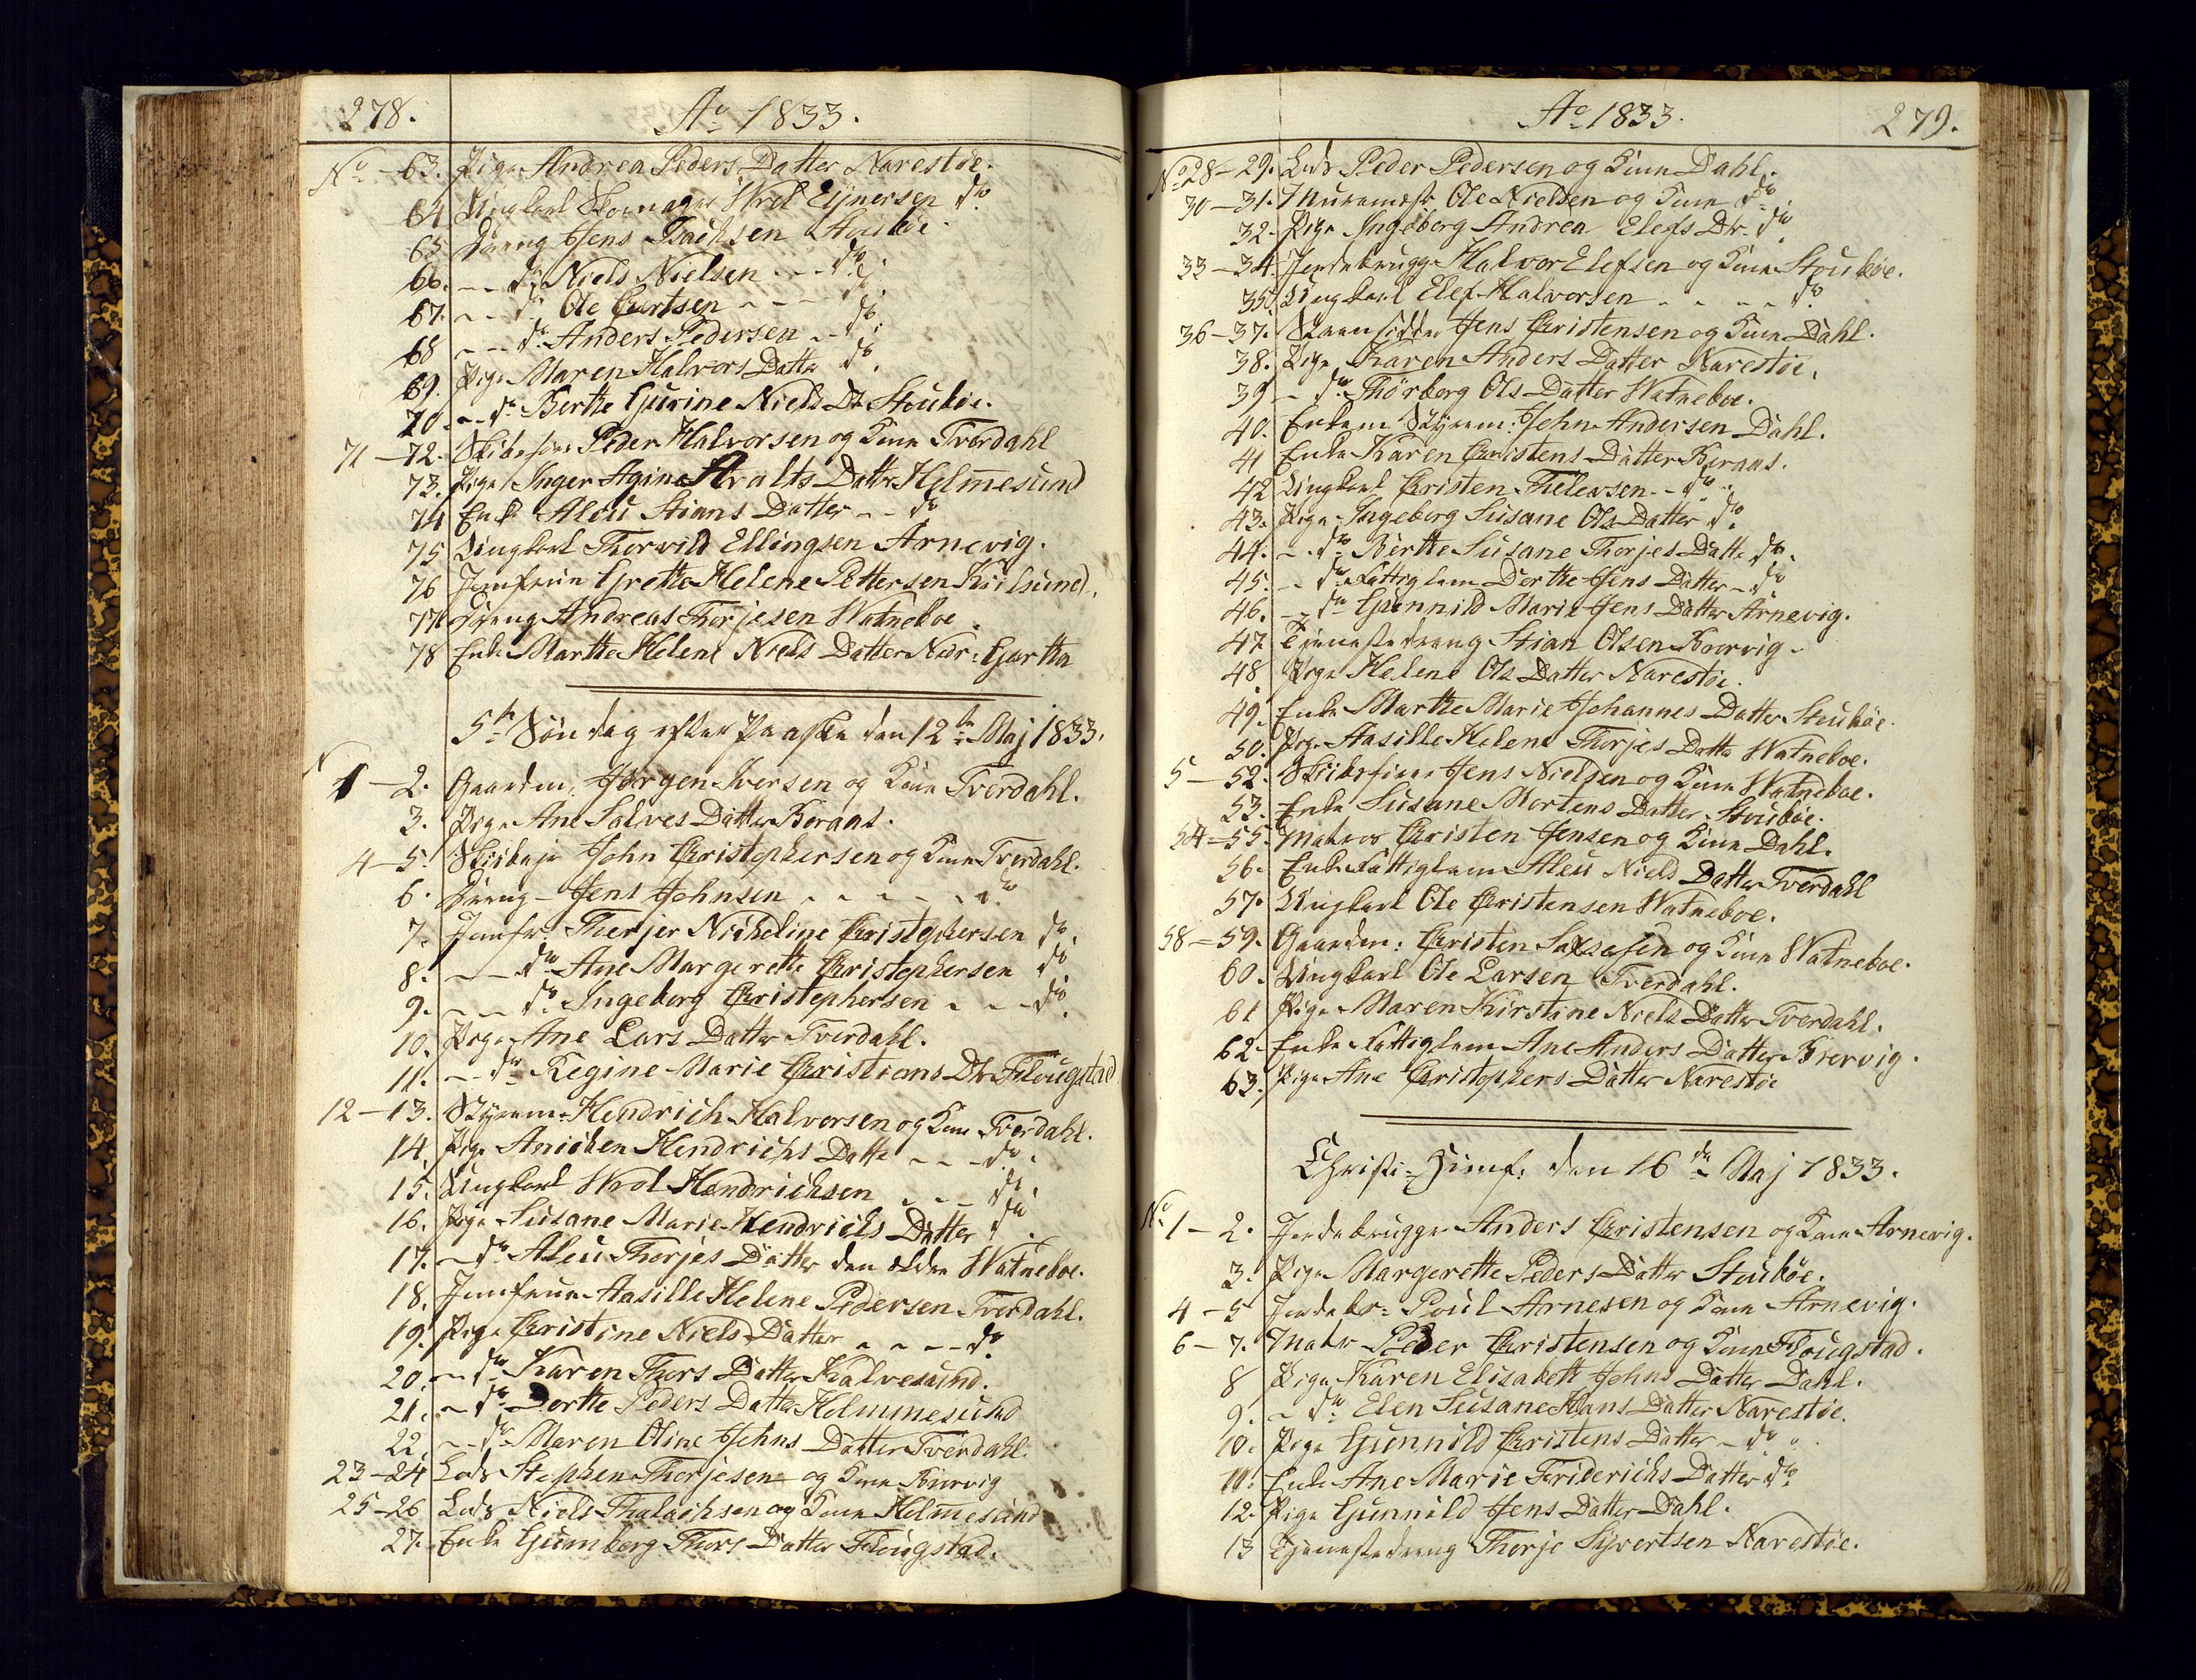 278. Ao 1833.
No - 63. Pige Andrea Peders Datter Narestøe.
64 Ungkarl Skomager Wrol Ejnersen do
65 Dreng Jens Isachsen Stoubøe.
66. - - do Niels Nielsen - - - do
67. - - do Ole Gurtsen - - - do
68 - - do Anders Pedersen - - do
69. Pige Maren Halvors Datter do
70. - - do Berthe Gurine Niels Dr Stoubøe.
71 - 72. Peder Halvorsen og Kone Tverdahl
73. Pige Inger Agine Aralts Datter Helmesund
74 Enke Aleu Stians Datter - - do
75 Ungkarl Thorvild Ellingsen Arnevig.
76 Jomfrue Grette Helene Pettersen Kiilsund.
77 Dreng Andreas Thorjesen Watneboe.
78 Enke Marthe Helene Niels Datter Nedr: Gjertha
5te Søndag efter Paaske den 12te Maj 1833.
N 1 - 2. Gaardm. Jørgen Iversen og Kone Tverdahl.
3. Pige Ane Salves Datter Boraas.
4 - 5. John Christophersen og Kone Tverdahl.
6. Dreng - Jens Johnsen - - - - - do
7. Jomfr. Therjer Nicheline Christophersen do
8. - - do Ane Margerette Christophersen do
9. - - do Ingeborg Christophersen - - - do
10. Pige Ane Lars Datter Tverdahl.
11. - - do Regine Marie Christians Dr Flougstad
12 - 13. Styrm. Hendrich Halvorsen og Kone Tverdahl.
14. Pige Anichen Hendrichs Datter - - - do
15. Ungkarl Wrol Hendrichsen - - - do
16. Pige Susane Marie Hendrichs Datter do
17. - do Aleu Thorjes Datter den ældre Watneboe.
18. Jomfrue Aasille Helene Pedersen Tverdahl.
19. Pige Christine Niels Datter - - - - do
20. - - do Karen Thors Datter Kalvesund.
21. - do Dorthe Peders Datter Holmmesund
22. - - do Maren Oline Johns Datter Tverdahl.
23 - 24 Lods Stephen Thorjesen og Kone Borvig
25 - 26 Lods Niels Thalachsen og Kone Helmesund
27. Enke Gunnborg Thors Datter Flougstad.
Ao 1833. 279.
No 28 - 29. Lods Peder Pedersen og Kone Dahl.
30 - 31. Muremestr Ole Nielsen og Kone do
32. Pige Ingeborg Andrea Elefs Dr. do
33 - 34. Jordebrugge Halvor Elefsen og Kone Stoubøe.
35. Ungkarl Elef Halvorsen - - - - do
36 - 37. Jens Christensen og Kone Dahl.
38. Pige Karen Anders Datter Narestøe.
39 - do Thorborg Ols Datter Watneboe.
40. Enkem Styrm: John Andersen Dahl.
41 Enke Karen Christens Datter Boraas.
42 Ungkarl Christen Thelevsen - - do
43. Pige Ingeborg Susane Ols Datter do
44. - - do Berthe Susane Thorjes Datte do
45. - - do Fattiglem Dorthe Jens Datter - do
46. - - do Gunnild Marie Jens Datter Arnevig.
47. Tjenestedreng Stian Olsen Borvig.
48 Pige Helene Ols Datter Narestøe.
49. Enke Marthe Marie Johannes Datter Stoubøe.
50. Pige Aasille Helene Thorjes Datter Watneboe.
5 - 52. Jens Nielsen og Kone Watneboe.
53. Enke Susane Mortens Datter Stoubøe.
54 - 55. Matros Christen Jensen og Kone Dahl.
56. Enke Fattiglem Aleu Niels Datter Tverdahl
57. Ungkarl Ole Christensen Watneboe.
58 - 59. Gaardm: Christen Saxesen og Kone Watneboe.
60. Ungkarl Ole Larsen Tverdahl.
61 Pige Maren Kirstine Niels Datter Tverdahl.
62. Enke Fattiglem Ane Anders Datter Borvig.
63. Pige Ane Christophers Datter Narestøe
Christi-Himf: den 16de Maj 1833.
No 1 - 2. Jordebrugge Anders Christensen og Kone Arnevig.
3. Pige Margerette Peders Datter Stoubøe.
4 - 5 Jordebr: Poul Arnesen og Kone Arnevig.
6 - 7. Matr Peder Christensen og Kone Flougstad.
8 Pige Karen Elisabett Johns Datter Dahl.
9. - do Elen Susane Hans Datter Narestøe.
10. Pige Gunnild Christens Datter - do
11. Enke Ane Marie Friderichs Datter do
12. Pige Gunnild Jens Datter Dahl.
13 Tjenestedreng Thorje Syvertsen Narestøe.